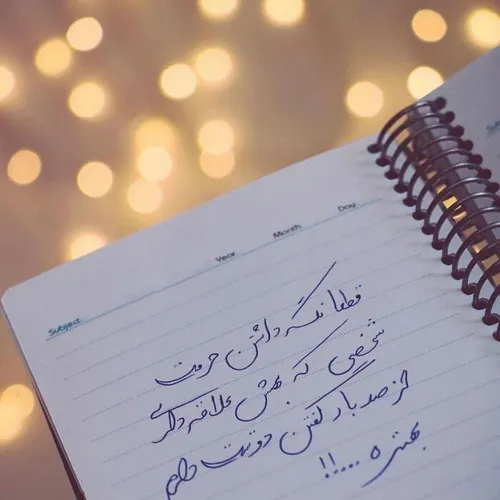 Subject:
Year
Month
Day
قطعا نگه داشتن حرمت
شخصی که بهش علاقه داری
از صد بار گفتن دوستت دارم
بهتره .....!!